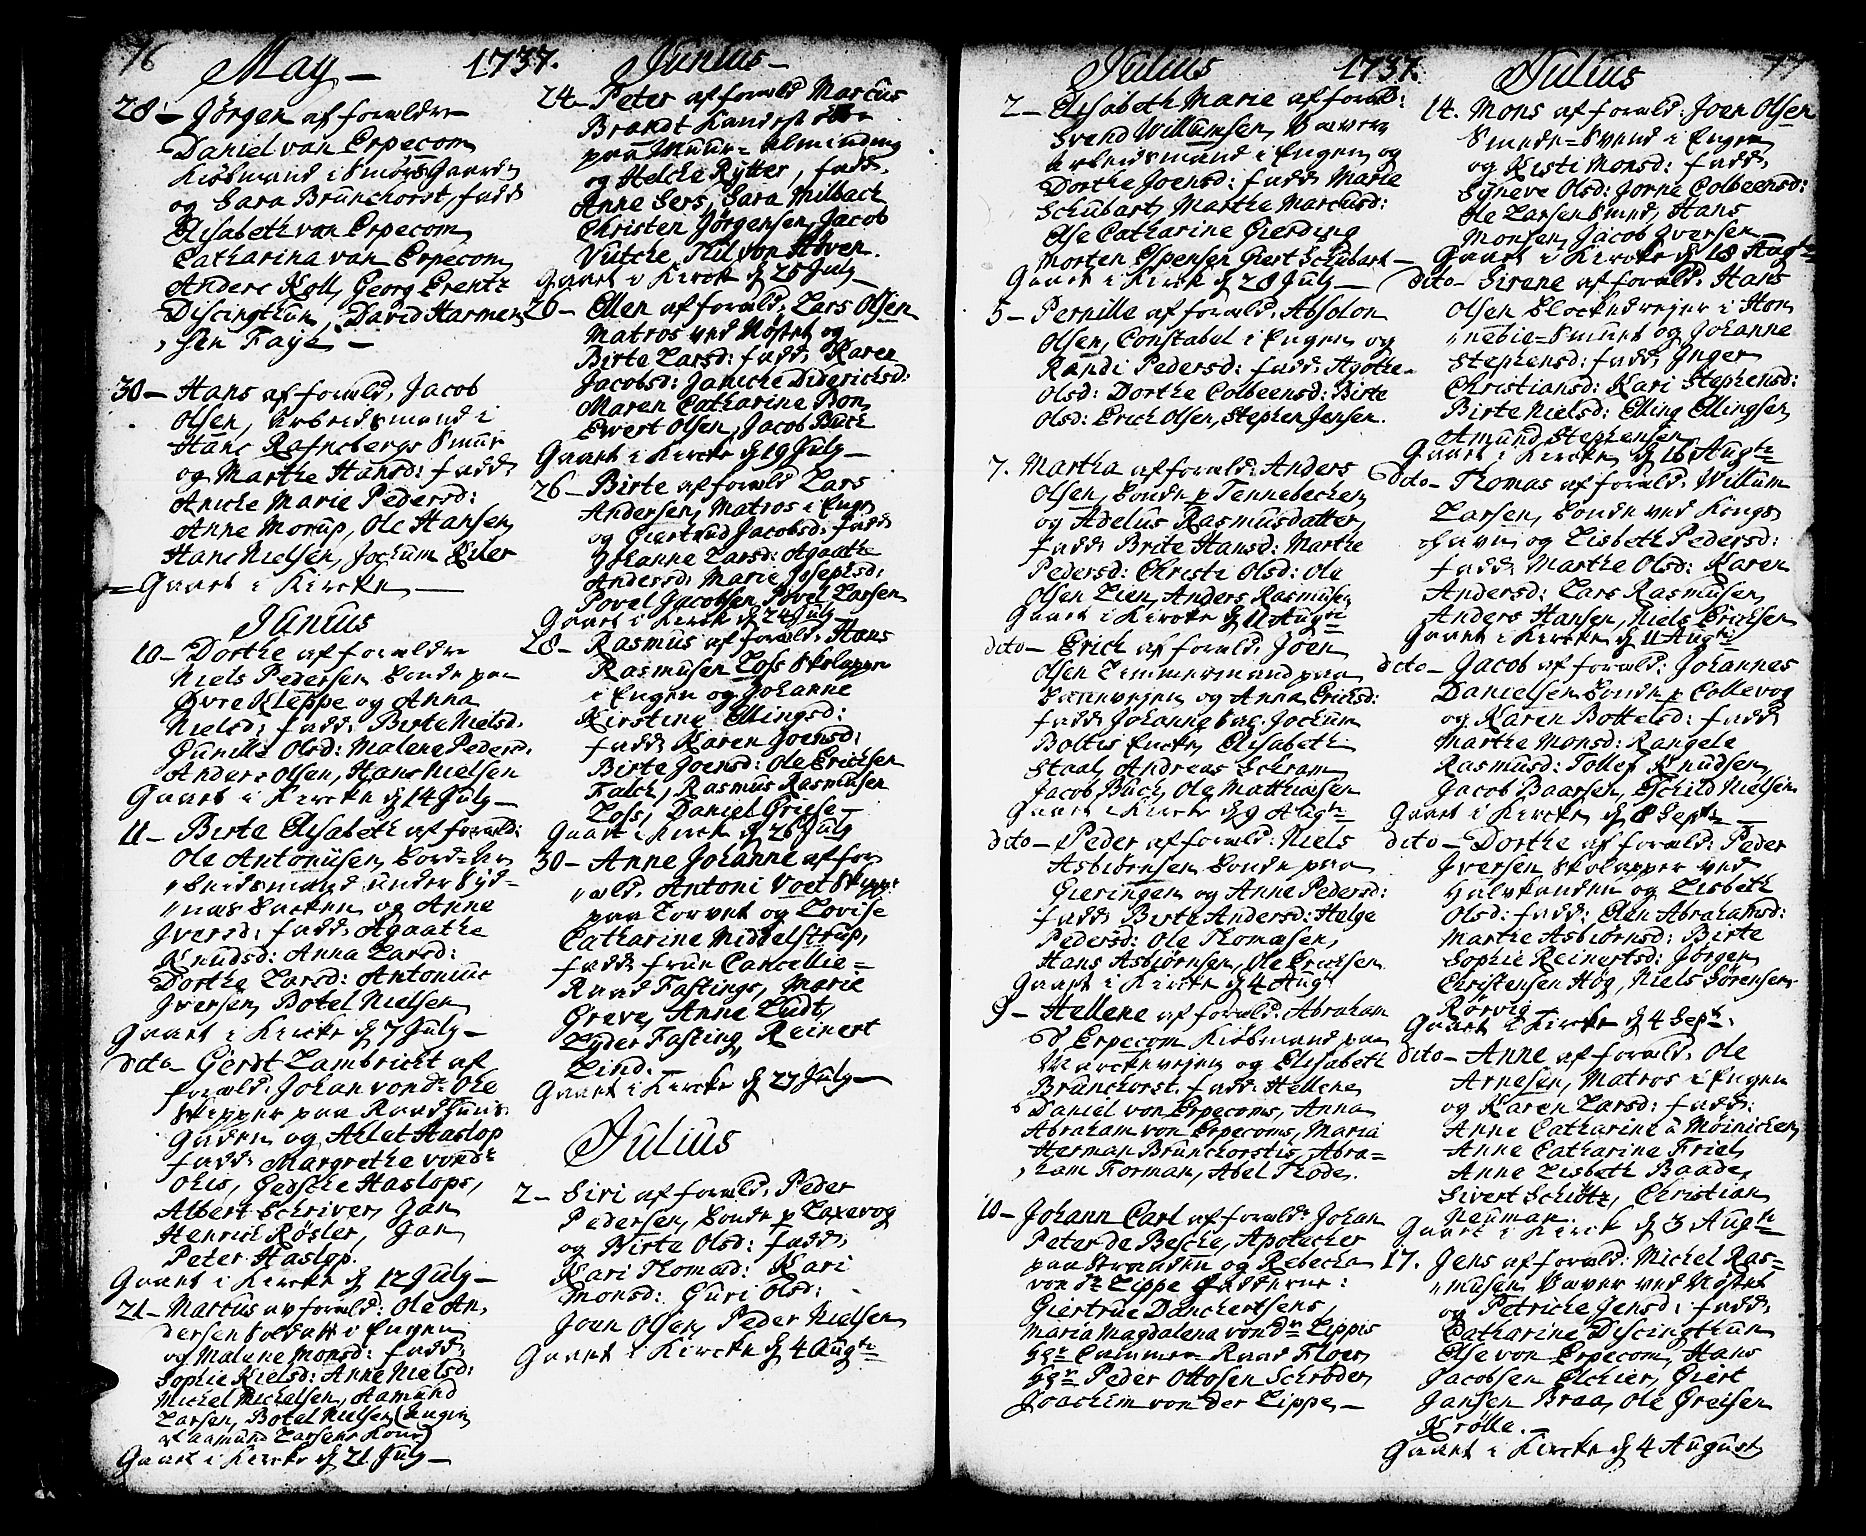 76
May — 1737. Junius —
28 — Jørgen af forældre
Daniel van Erpecom
Kiøbmand i Smørs Gaard
og Sara Brunchorst, fadd
Elisabeth van Erpecom,
Catharina van Erpecom,
Anders Koll, Georg Erentz
Discingthun, David Harmen,
sen Faye —
30 — Hans af foræld. Jacob
Olsen, Arbeidsmand i
Hans Rafnebergs Smur
og Marthe Hansd: fadd:
Aniche Marie Pedersd:
Anne Morup, Ole Hansen,
Hans Nielsen, Jochum Eiler
= Gaaet i Kircke —
Junius
10 — Dorthe af forældre
Niels Pedersen bonde paa
Øvre Kleppe og Anna
Nielsd: fadd: Birte Nielsd.
Gunille Olsd: Malene Pedersd.
Anders Olsen, Hans Nielsen
Gaaet i Kircke d 14 July —
11 — Birte Elisabeth af foræld:
Ole Antonisen bord-Ar
beidsmand under Syd=
næs backen og Anne
Iversd: fadd: Agaathe
Knudsd: Anna Larsd:
Dorthe Larsd: Antonius
Iversen, Botel Nielsen
Gaaet i Kircke d 7 July —
dito — Gerdt Lambricht af
foræld: Johan vond: Ohe
Skipper paa Raadhuus
Gaden og Ahlet Haslop
fadd: Margrethe vond:
Ohes, Gedske Haslops,
Albert Schriver, Jan
Henrich Røsler, Jan
Peter Haslop.
Gaaet i Kircke d 12 July —
21 — Marcus av foræld: Ole An,
dersen Soldatt i Engen
og Malene Monsd: fadd:
Sophie Nielsd: Anne Nielsd:
Michel Michelsen, Aamund
Larsen, Botel Nielsen (Ingen
af Aamund Larsens Kone)
Gaaet i Kircke d 21 July —
24 — Peter af foræld Marcus
Brandt Landsk
paa Muur=Alminding
og Helche Rytter, fadd.
Anne Sers, Sara Milbach
Christen Jørgensen, Jacob
Vutche, Til von Hoven.
Gaaet i Kircke d 25 July —
26 — Ellen af foræld: Lars Olsen
Matros ved Nøstet og
Birte Larsd: fadd: Karen
Jacobsd: Janiche Diderichsd:
Maren Catharine Bon,
Ewert Olsen, Jacob Buch
Gaaet i Kircke d 19 July —
26 — Birte af foræld Lars
Andersen, Matros i Engen
og Giertrud Jacobsd: fadd
Johanne Larsd: Agaathe
Andersd: Marie Josephsd:
Povel Jacobsen, Povel Larsen,
Gaaet i Kircke d 24 July —
28 — Rasmus af foræld: Hans
Rasmusen Loss Skolapper
i Engen og Johanne
Kirstine Ellingsd:
fadd: Karen Joensd:
Birte Joensd: Ole Erichsen
Falch, Rasmus Rasmusen
Loss, Daniel Griise —
Gaaet i Kircke d 26 July
30 — Anne Johanne af for
æld. Antoni Voet Skipper
paa Torvet og Lovise
Catharine Middelstrup,
fadd: frue Cancellie=
Raad Fastings, Marie
Greve, Anne Ludt,
Lyder Fasting, Reinert
Lind.
Gaaet i Kircke d 27 July —
Julius
2 — Siri af foræld: Peder
Pedersen, bonde p Laxevog
og Birte Olsd: fadd:
Kari Thomasd: Kari
Monsd: Guri Olsd:
Joen Olsen, Peder Nielsen,
Gaaet i Kircke d 4 Augte
Julius 1737. Julius 77
2 — Elisabeth Marie af foræld:
Svend Willumsen, Væver
Arbeidsmand i Engen og
Dorthe Joensd: fadd: Marie
Schubart, Marthe Marcusd:
Else Catharine Gierding
Morten Espensen Giert Schubart —
Gaaet i Kircke d 28 July —
5 — Pernille af foræld: Absolon
Olsen, Constabel i Engen og
Randi Pedersd: fadd: Agothe
Olsd: Dorthe Colbeensd: Birte
Olsd: Erich Olsen, Stephen Jensen.
7. Martha af foræld: Anders
Olsen, bonde p Tennebecken
og Adelus Rasmusdatter,
fadd: Brite Hansd: Marthe
Pedersd: Christi Olsd: Ole
Olsen Lien, Anders Rasmusen
Gaaet i Kircke d 11 Augte
dito — Erich af foræld: Joen
Olsen Timmermand paa
og Anna Erichsd:
fadd: Johanne Jochum
Boltis Elisabeth
Staal, Andreas Schram
Jacob Buch, Ole Mathiasen
Gaaet i Kircke d 9 Augte
dito — Peder af foræld: Niels
Asbiørnsen bonde paa
Gieringen og Anne Pedersd:
fadd: Berthe Andersd: Helge
Pedersd: Ole Thomasen,
Hans Asbiørnsen, Ole Erichsen
Gaaet i Kircke d 4 Aug
9 — Hellene af foræld: Abraham
v Erpecom Kiøbmand paa
Marckeveyen og Elisabeth
Brunchorst. fadd: Hellene
Daniel von Erpecoms, Anna
Abraham von Erpecoms, Maria
Herman Brunchorstis, Abra=
ham Forman, Abel Thode.
10 — Johann Carl af foræld: Johan
Peter de Besche, Apothecher
paa Stranden og Rebecha
von dr Lippe fadderne:
Giertrue Danchertsens,
Maria Magdalena von dr Lippes
Hr Cammer Raad Floer,
Hr Peder Ottosen Schrøder,
Joachim von der Lippe, —
14. Mons af foræld: Joen Olsen
Smede=Svend i Engen
og Kisti Monsd: fadd:
Syneve Olsd: Jorne Colbeensd:
Ole Larsen Smed, Hans
Monsen, Jacob Iversen —
Gaaet i Kircke d 18 Augte
dito — Sirene af foræld: Hans
Olsen Blockedreyer i Hon
nebie=Smuet og Johanne
Stephensd: fadd: Inger
Christiansd: Kari Stephensd:
Birte Nielsd: Elling Ellingsen,
Amund Stephensen
Gaaet i Kircke d 16 Augte
dito — Thomas af foræld: Willum
Larsen, bonde ved Kongs
havn og Lisbeth Pedersd:
fadd: Marthe Olsd: Karen
Andersd: Lars Rasmusen,
Anders Hansen, Niels Erichsen
Gaaet i Kircke d 11 Augte
dito — Jacob af foræld: Johannes
Danielsen bonde p Collevog
og Karen Bottelsd: fadd:
Marthe Monsd: Rangele
Rasmusd: Tollef Knudsen,
Jacob Baarsen, Eschild Nielsen
Gaaet i Kircke d 8 Septr —
dito — Dorthe af foræld: Peder
Iversen Skolapper ved
Halvkanden og Lisbeth
Olsd: fadd: Elen Abrahamsd:
Marthe Asbiørnsd: Birte
Sophie Reinertsd: Jørgen
Christensen Høg, Niels Sørensen
Rørvig —
Gaaet i Kircke d 4 Septr.
dito — Anne af foræld: Ole
Arnesen, Matros i Engen
og Karen Larsd: fadd:
Anne Catharine a Møinichen,
Anne Catharine Friel,
Anne Lisbeth Baade,
Sivert Schiøtz, Christian
Neuman.
Gaaet i Kircke d 3 Augte
17. Jens af foræld: Michel Ras=
musen Væver ved Nøstet
og Petriche Jensd: fadd:
Catharine Discingthun
Else von Erpecom, Hans
Jacobsen Elchier, Giert
Jansen Braa, Ole Greisen
Krølle. —
Gaaet i Kircke d 4 August